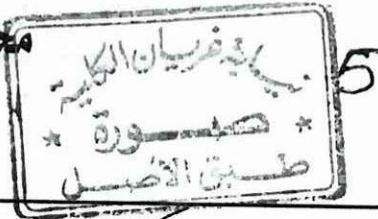 نيابة غريان الكلية
* صورة *
طبق الأصل
5